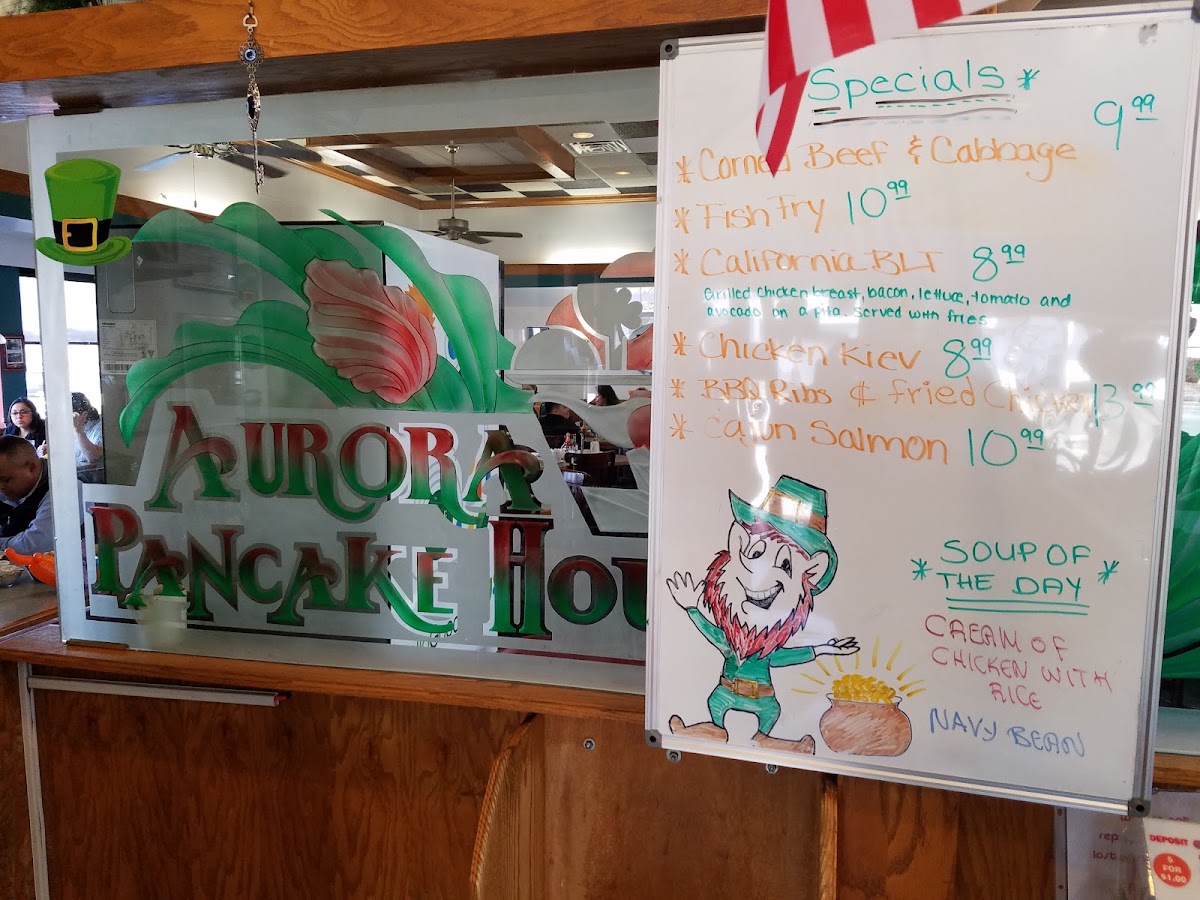 AURORA
PANCAKE HOU
Specials*
* Corned Beef & Cabbage 9.99
* Fish Fry 10.99
* California BLT 8.99
Grilled chicken breast, bacon, lettuce, tomato and
avocado on a Pita. Served with fries
* Chicken Kiev 8.99
* BBQ Ribs & fried Chicken 13.99
* Cajun Salmon 10.99
* SOUP OF *
THE DAY
CREAM OF
CHICKEN WITH
RICE
NAVY BEAN
DEPOSIT
5
FOR
$1.00